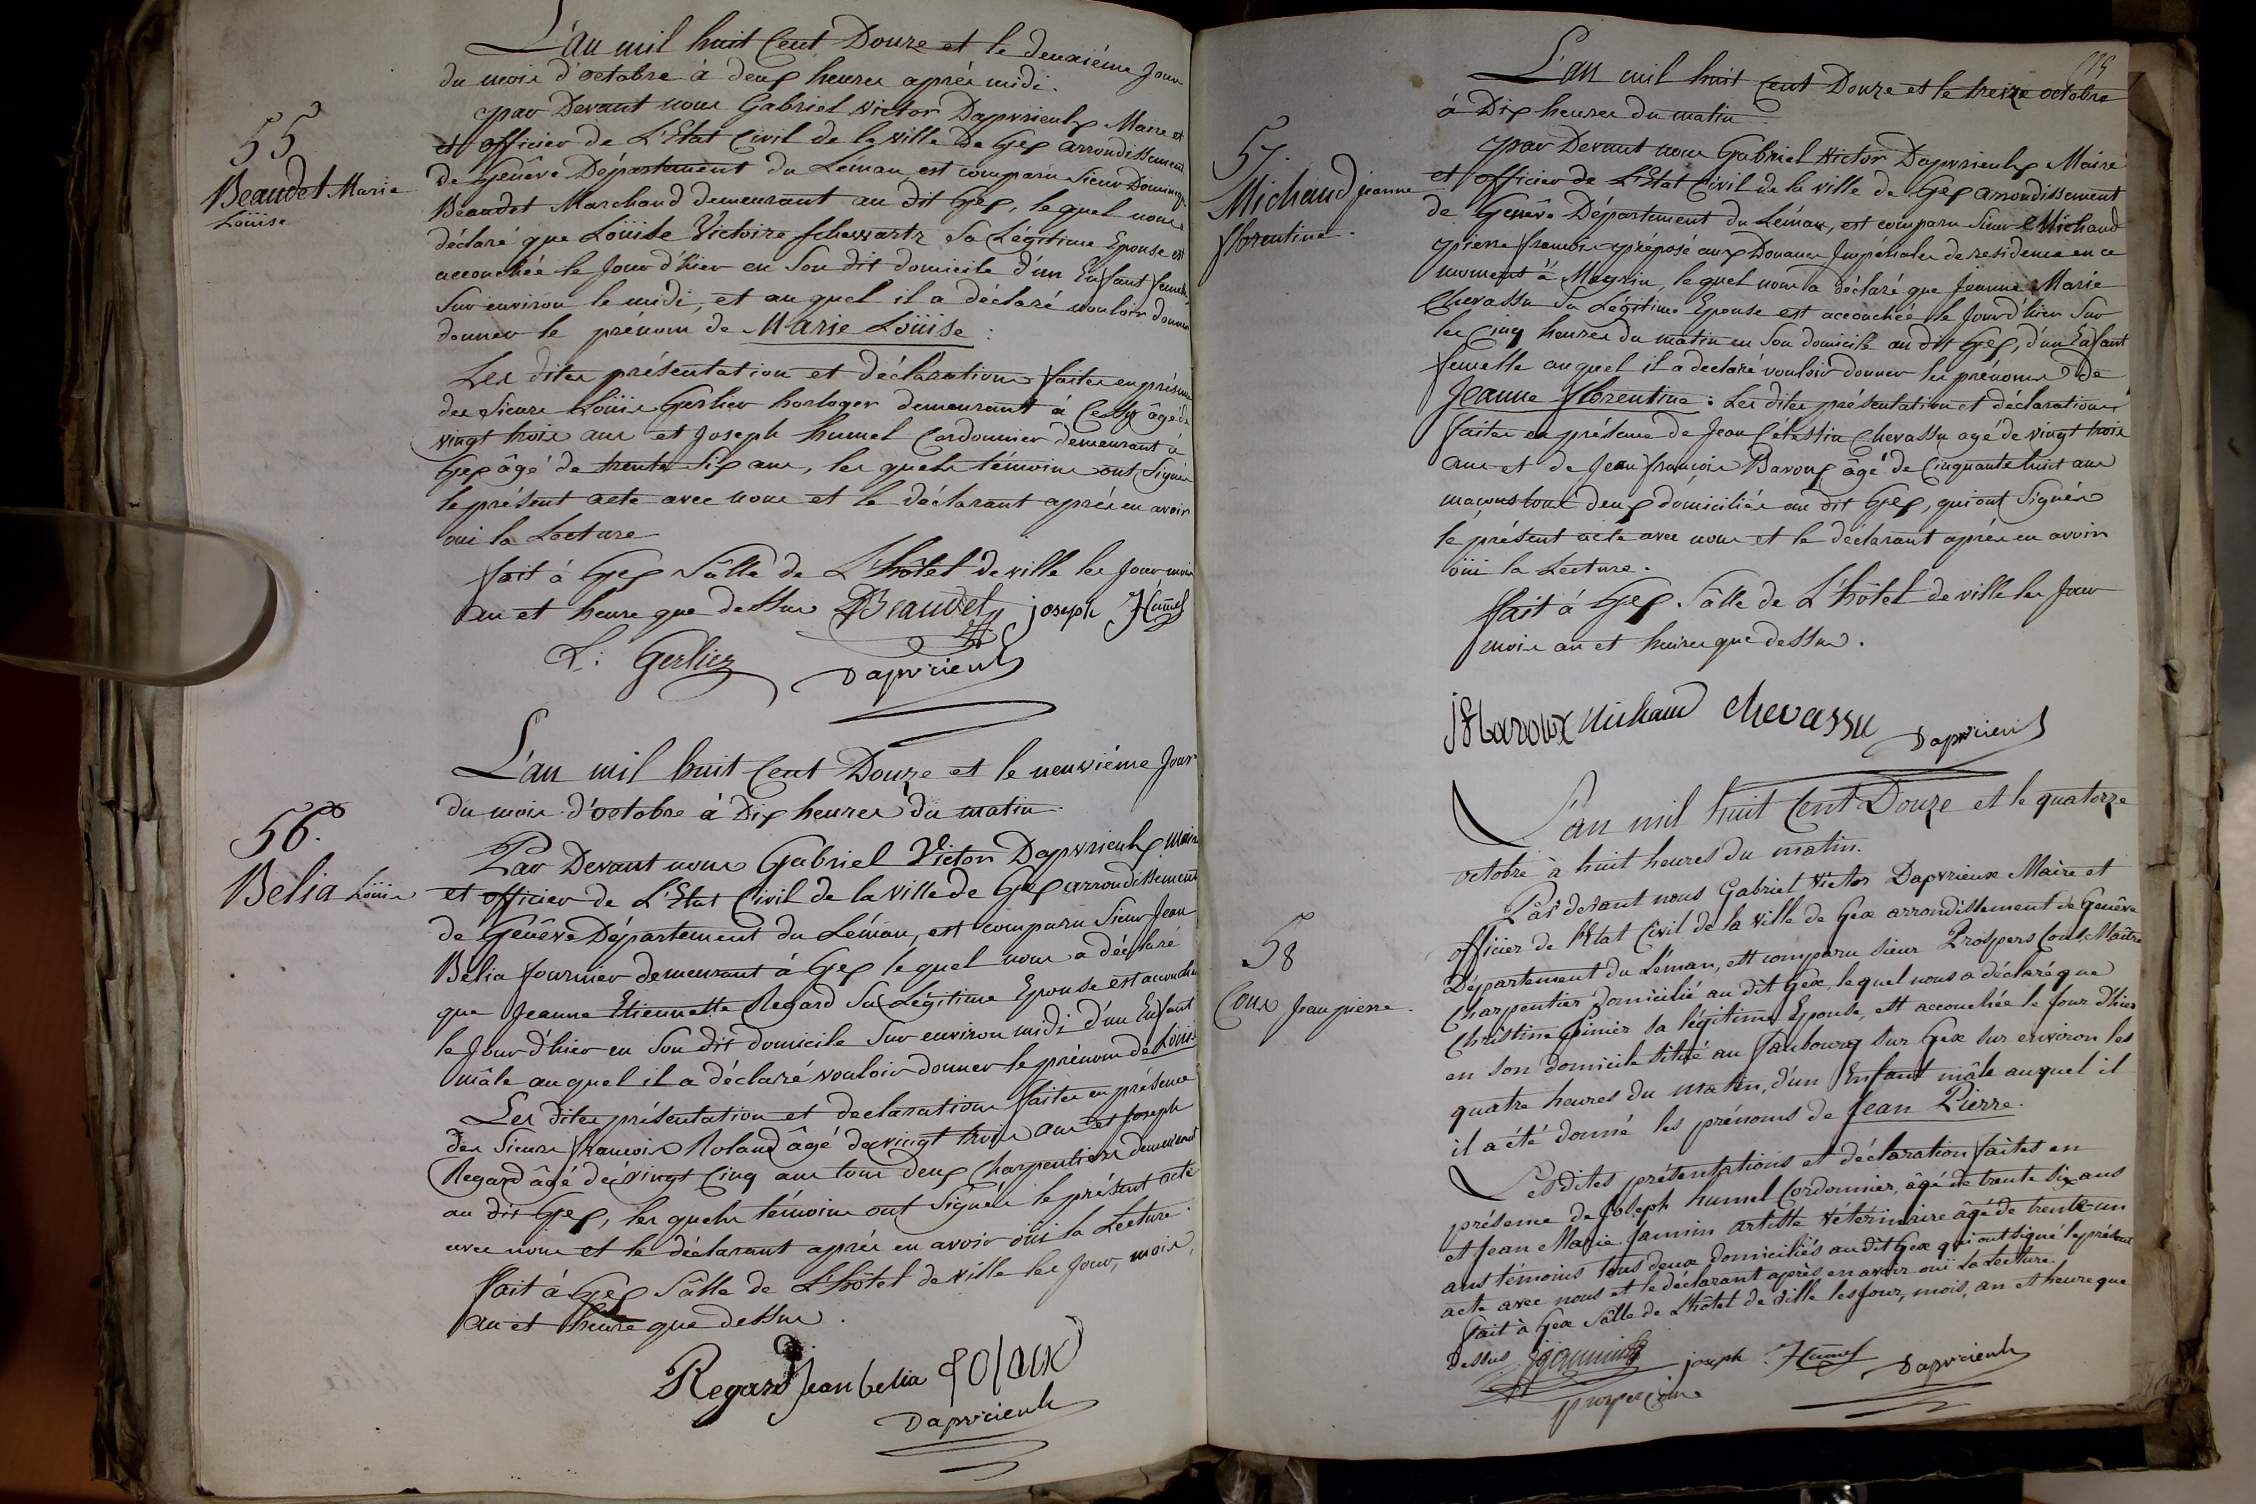 L'an mil huit Cent Douze et le deuxiéme Jour
du mois d'octobre à deux heures aprés midi.
par Devant nous Gabriel Victor Dapvrieulx Maire et
et officier de L'Etat Civil de la ville De Gex arrondissement
de Genêve Département du Léman est comparu Sieur Dominique
55
Beaudet Marie
Loüise
Beaudet Marchand demeurant au dit Gex, lequel nous a
déclaré que Loüise Victoire Schewartz Sa Légitime Epouse est
accouchée le Jour d'hier en Son dit domicile d'un Enfant femelle
Sur environ le midi, et au quel il a déclaré vouloir donner
donner le prénom de Marie Loüise :
Les dites présentation et déclaration faites en présence
des Sieurs Loüis Gerlier horloger demeurant à Cessy âgé de
vingt trois ans et Joseph humel Cordonnier demeurant à
Gex âgé de trente Six ans, les quels témoins ont Signés
le présent acte avec nous et le déclarant aprés en avoir
oui la Lecture
fait à Gex Sâlle de L'hôtel de ville les Jour mois
an et heure que dessus DBeaudet joseph Humel
L: Gerlier Dapvrieulx
L'an mil huit Cent Douze et le neuviéme Jour
du mois d'octobre à Dix heures du matin.
56.
Belia Loüis
Par Devant nous Gabriel Victor Dapvrieulx Maire
et officier de L'Etat Civil de la ville de Gex arrondissement
de Genêve Département du Léman, est comparu Sieur Jean
Belia fournier demeurant à Gex lequel nous a déclaré
que Jeanne Etiennette Regard Sa Légitime Epouse est accouchée
le Jour d'hier en Son dit domicile Sur environ midi d'un Enfant
mâle au quel il a déclaré vouloir donner le prénom de Loüis
Les dites présentation et declaration faites en présence
des Sieurs françois Roland âgé de vingt trois ans et Joseph
Regard âgé de vingt Cinq ans tous deux Charpentiers demeurant
au dit Gex, les quels témoins ont Signés le présent acte
avec nous et le déclarant aprés en avoir oüi la Lecture.
fait à Gex Sâlle de L'hôtel de ville les Jour, mois,
an et heure que dessus.
Regard Jean belia
Dapvrieulx
L'an mil huit Cent Douze et le treize octobre
à Dix heures du matin
57.
Michaud jeanne
florentine.
par Devant nous Gabriel Victor Dapvrieulx Maire
et officier de L'Etat Civil de la ville de Gex arrondissement
de Genêve Département du Léman, est comparu Sieur Michaud
pierre françois préposé aux Douanes Impériales de residence en ce
moment à Meyrin, lequel nous a déclaré que Jeanne Marie
Chevassu Sa Légitime Epouse est accouchée le Jour d'hier Sur
les Cinq heures du matin en Son domicile au dit Gex, d'un Enfant
femelle auquel il a declaré vouloir donner les prénoms de
Jeanne florentine : Les dites présentation et déclaration
faites en présence de Jean Célestin Chevassu agé de vingt trois
ans et de Jean françois Baroux âgé de Cinquante huit ans
macons tous deux domiciliés au dit Gex, qui ont Signés
le présent acte avec nous et le déclarant aprés en avoir
oüi la Lecture.
fait à Gex Sâlle de L'hôtel de ville les Jour
mois an et heure que dessus.
jfbaroux Michaud chevassu Dapvrieulx
L'an mil huit Cent Douze et le quatorze
octobre à huit heures du matin.
Par devant nous Gabriel Victor Dapvrieux Maire et
officier de l'Etat Civil de la ville de Gex arrondissement de Genêve
58
Coux Jean pierre.
Département du Léman, est comparu sieur Prospers Coux Maître
Charpentier domicilié au dit Gex, lequel nous a déclaré que
Christine sa légitime Epouse, est accouchée le Jour d'hier
en son domicile situé au faubourg sur Gex sur environ les
quatre heures du matin, d'un Enfant mâle auquel il
il a été donné les prénoms de Jean Pierre.
Les dites présentations et déclaration faites en
présence de Joseph humel Cordonnier, âgé de trente six ans
et Jean Marie Jannin artiste Vétérinaire âgé de trente-un
ans témoins tous deux domiciliés au dit Gex qui ont signé le présent
acte avec nous et le déclarant après en avoir ouï la Lecture.
fait à Gex Sâlle de L'hôtel de ville les Jour, mois, an et heure que
Dessus. joseph Humel Dapvrieulx